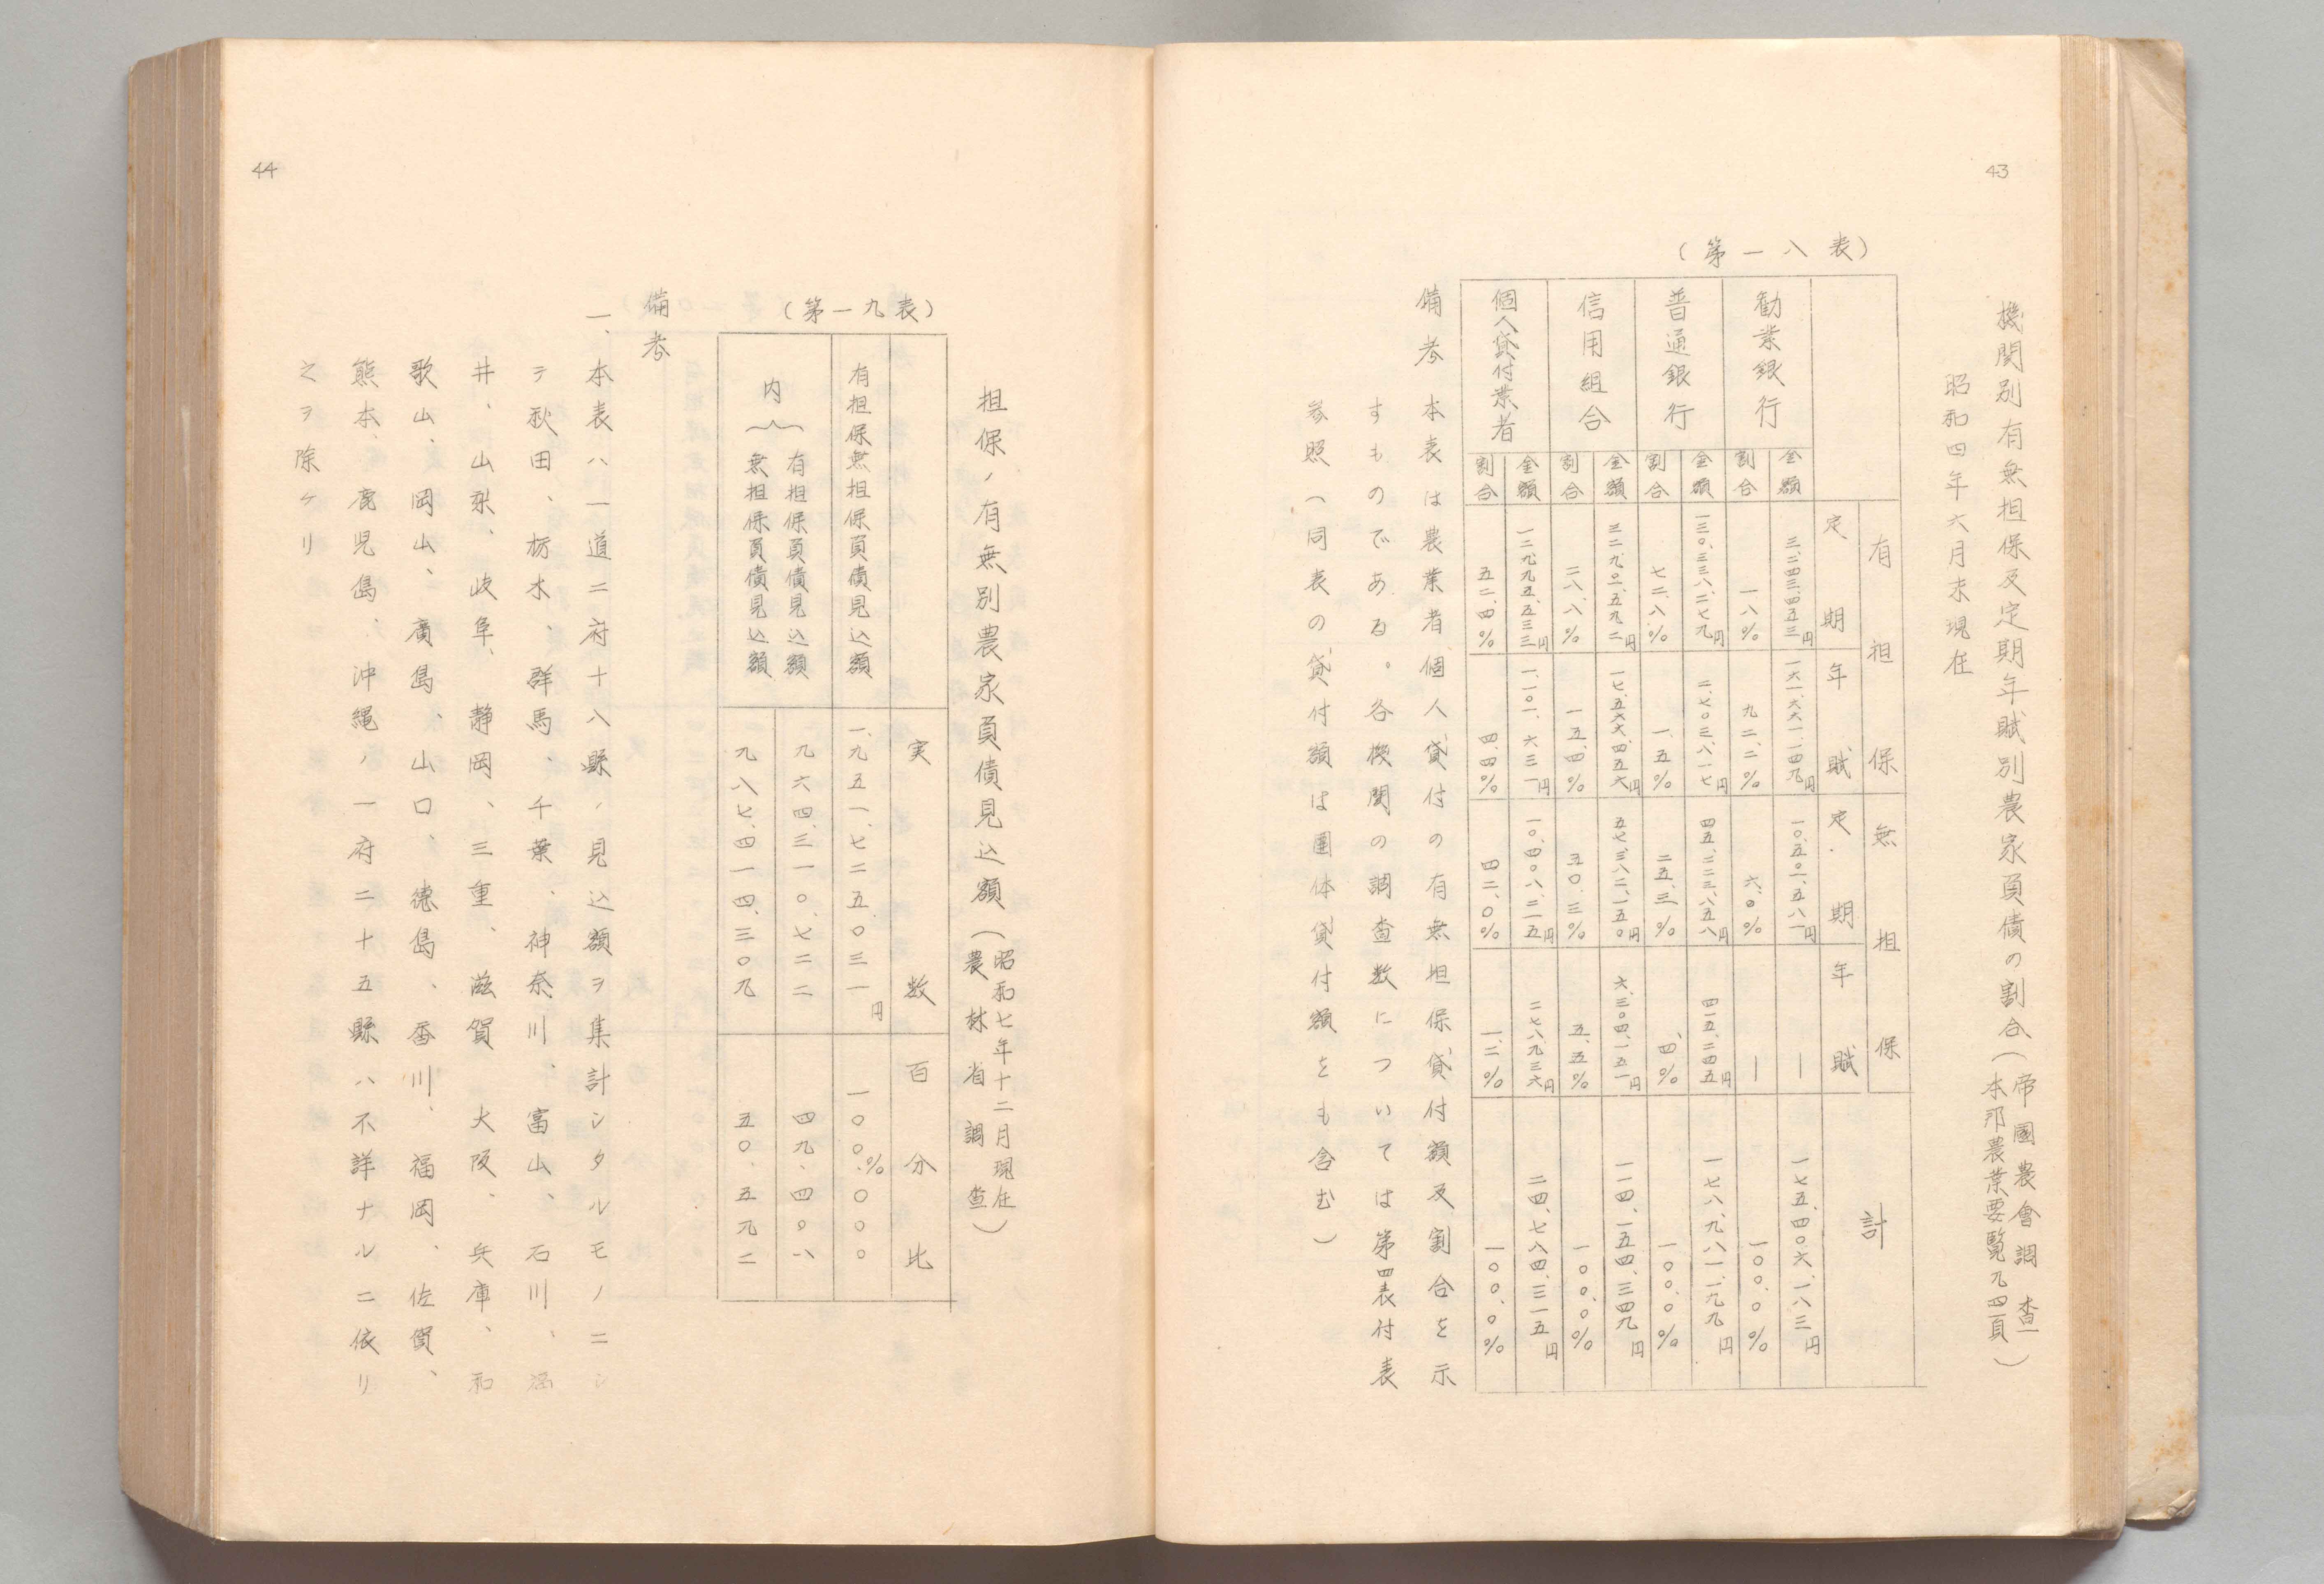 43
機関別有無担保及定期年賦別農家負債の割合(帝國農會調査 本邦農業要覧九四頁)
昭和四年六月末現在
(第一八表)
有担保 無担保 計
定期 年賦 定期 年賦
勧業銀行 金額 三、二四三、四五三円 一六一、六六一、一四九円 一〇、五〇一、五八一円 — 一七五、四〇六、一八三円
割合 一、八% 九二、二% 六、〇% — 一〇〇、〇%
普通銀行 金額 一三〇、三三八、二七九円 二、七〇三、八一七円 四五、五二三、八五八円 四一五、二四五円 一七八、九八一、一九九円
割合 七二、八% 一、五% 二五、三% 、四% 一〇〇、〇%
信用組合 金額 三二、九〇一、五九二円 一七、五六六、四五六円 五七、三八二、一五〇円 六、三〇四、一五一円 一一四、一五四、三四九円
割合 二八、八% 一五、四% 五〇、三% 五、五% 一〇〇、〇%
個人貸付業者 金額 一二、九九五、五三三円 一、一〇一、六三一円 一〇、四〇八、二一五円 二七八、九三六円 二四、七八四、三一五円
割合 五二、四% 四、四% 四二、〇% 一、二% 一〇〇、〇%
備考 本表は農業者個人貸付の有無担保貸付額及割合を示
すものである。各機関の調査数については第四表付表
参照(同表の貸付額は團体貸付額をも含む)
44
担保ノ有無別農家負債見込額(昭和七年十二月現在 農林省調査)
(第一九表)
実数 百分比
有担保無担保負債見込額 一、九五一、七二五、〇三一円 一〇〇.〇〇〇%
内 有担保負債見込額 九六四、三一〇、七二二 四九.四〇八
無担保負債見込額 九八七、四一四、三〇九 五〇.五九二
備考
一、本表ハ一道二府十八縣ノ見込額ヲ集計シタルモノニシ
テ秋田、栃木、群馬、千葉、神奈川、富山、石川、福
井、山梨、岐阜、静岡、三重、滋賀、大阪、兵庫、和
歌山、岡山、廣島、山口、徳島、香川、福岡、佐賀、
熊本、鹿児島、沖縄ノ一府二十五縣ハ不詳ナルニ依リ
之ヲ除ケリ